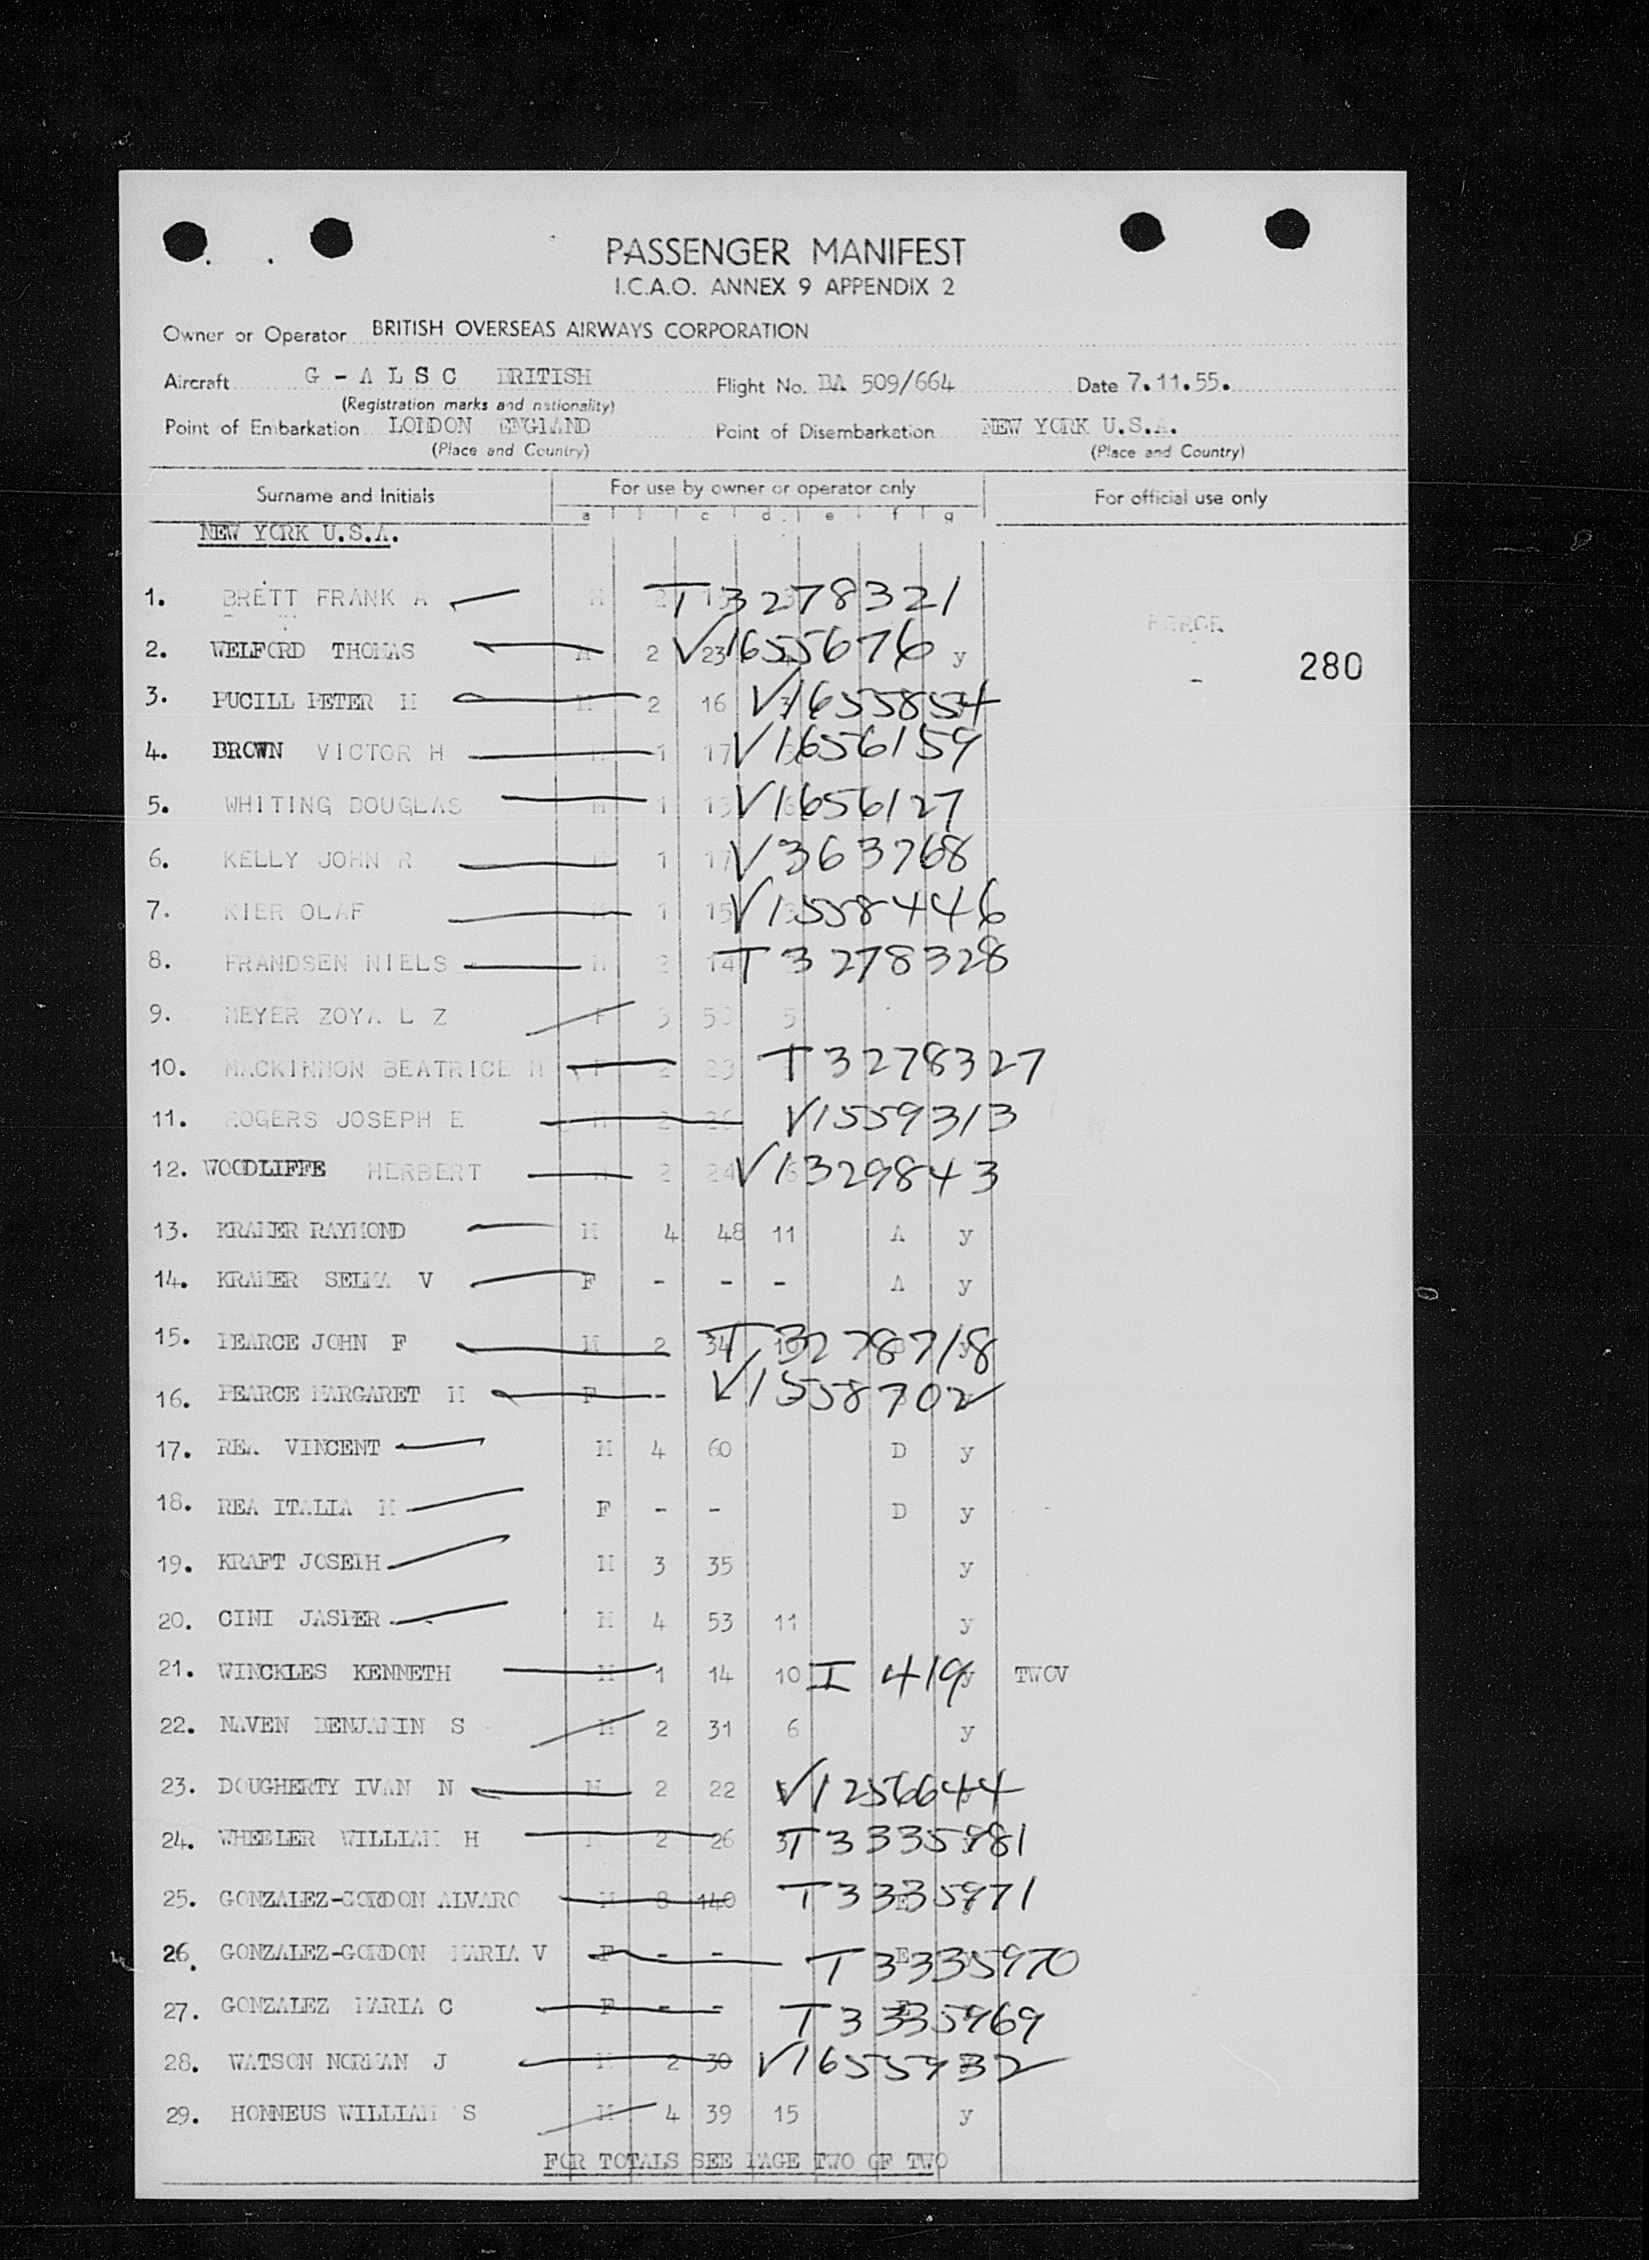 PASSENGER MANIFEST
I.C.A.O. ANNEX 9 APPENDIX 2
Owner or Operator BRITISH OVERSEAS AIRWAYS CORPORATION
Aircraft G - A L S C BRITISH Flight No. BA 509/664 Date 7.11.55.
(Registration marks and nationality)
Point of Embarkation LONDON ENGlAND Point of Disembarkation NEW YORK U.S.A.
(Place and Country) (Place and Country)
Surname and Initials For use by owner or operator only For official use only
a c d e f g
NEW YORK U.S.A.
1. BRETT FRANK A M 2 T3278321
2. WELFORD THOMAS M 2 23 V1655676 y
280
3. PUCILL PETER H M 2 16 V1655854
4. BROWN VICTOR H M 1 17 V1656159
5. WHITING DOUGLAS M 1 13 V1656127
6. KELLY JOHN R M 1 17 V363768
7. KIER OLAF M 1 15 V1558446
8. FRANDSEN NIELS M 2 14 T3278328
9. MEYER ZOYA L Z F 3 5
10. MACKINNON BEATRICE M F 2 23 T3278327
11. ROGERS JOSEPH E M 2 26 V1559313
12. WOODLIFFE HERBERT M 2 24 6 V1329843
13. KRAMER RAYMOND M 4 48 11 A y
14. KRAMER SELMA V F - - - A y
15. PEARCE JOHN F M 2 34 T3278718 y
16. PEARCE MARGARET M F - - V1558702
17. REA VINCENT M 4 60 D y
18. REA ITALIA M F - - D y
19. KRAFT JOSEPH M 3 35 y
20. CINI JASPER M 4 53 11 y
21. WINCKLES KENNETH M 1 14 10 I 419 y TWOV
22. NAVEN BENJAMIN S M 2 31 6 y
23. DOUGHERTY IVAN N M 2 22 V1256644
24. WHEELER WILLIAM H M 2 26 3 T3335981
25. GONZALEZ-GORDON ALVARO M 8 140 T3335971 E
26. GONZALEZ-GORDON MARIA V F - - T3335970 E
27. GONZALEZ MARIA C F - - T3335969 E
28. WATSON NORMAN J M 2 30 V1655932
29. HONNEUS WILLIAM S M 4 39 15 y
FOR TOTALS SEE PAGE TWO OF TWO